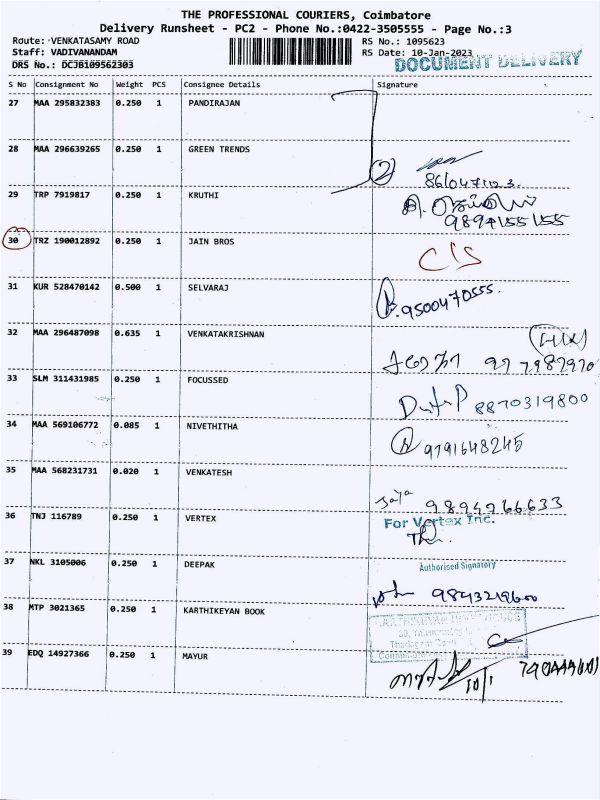 THE PROFESSIONAL COURIERS, Coimbatore
Delivery Runsheet - PC2 - Phone No.:0422-3505555 - Page No.:3
Route: VENKATASAMY ROAD
RS No.: 1095623
Staff: VADIVANANDAM
RS Date: 10-Jan-2023
DRS No.: DCJB109562303
DOCUMENT DELIVERY
S No Consignment No Weight PCS Consignee Details Signature
27 MAA 295832383 0.250 1 PANDIRAJAN
28 MAA 296639265 0.250 1 GREEN TRENDS
2
29 TRP 7919817 0.250 1 KRUTHI
30 TRZ 190012892 0.250 1 JAIN BROS
31 KUR 528470142 0.500 1 SELVARAJ
9500470555.
32 MAA 296487098 0.635 1 VENKATAKRISHNAN
33 SLM 311431985 0.250 1 FOCUSSED
8870319800
34 MAA 569106772 0.085 1 NIVETHITHA
9791648245
35 MAA 568231731 0.020 1 VENKATESH
Jaya 9894766633
36 TNJ 116789 0.250 1 VERTEX
For Vertex Inc.
Authorised Signatory
37 NKL 3105006 0.250 1 DEEPAK
9843219600
38 MTP 3021365 0.250 1 KARTHIKEYAN BOOK
39 EDQ 14927366 0.250 1 MAYUR
10/1